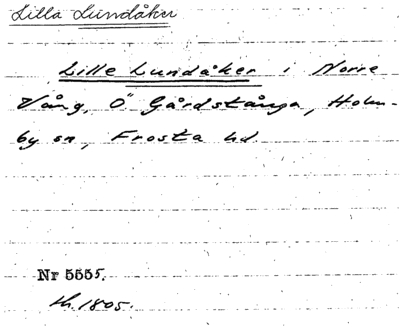 Lilla Lundåker
Lille Lundåker i Norre
Vång, Ö Gårdstånga, Holm-
by sn, Frosta hd.
Nr 5555.
th. 1805.